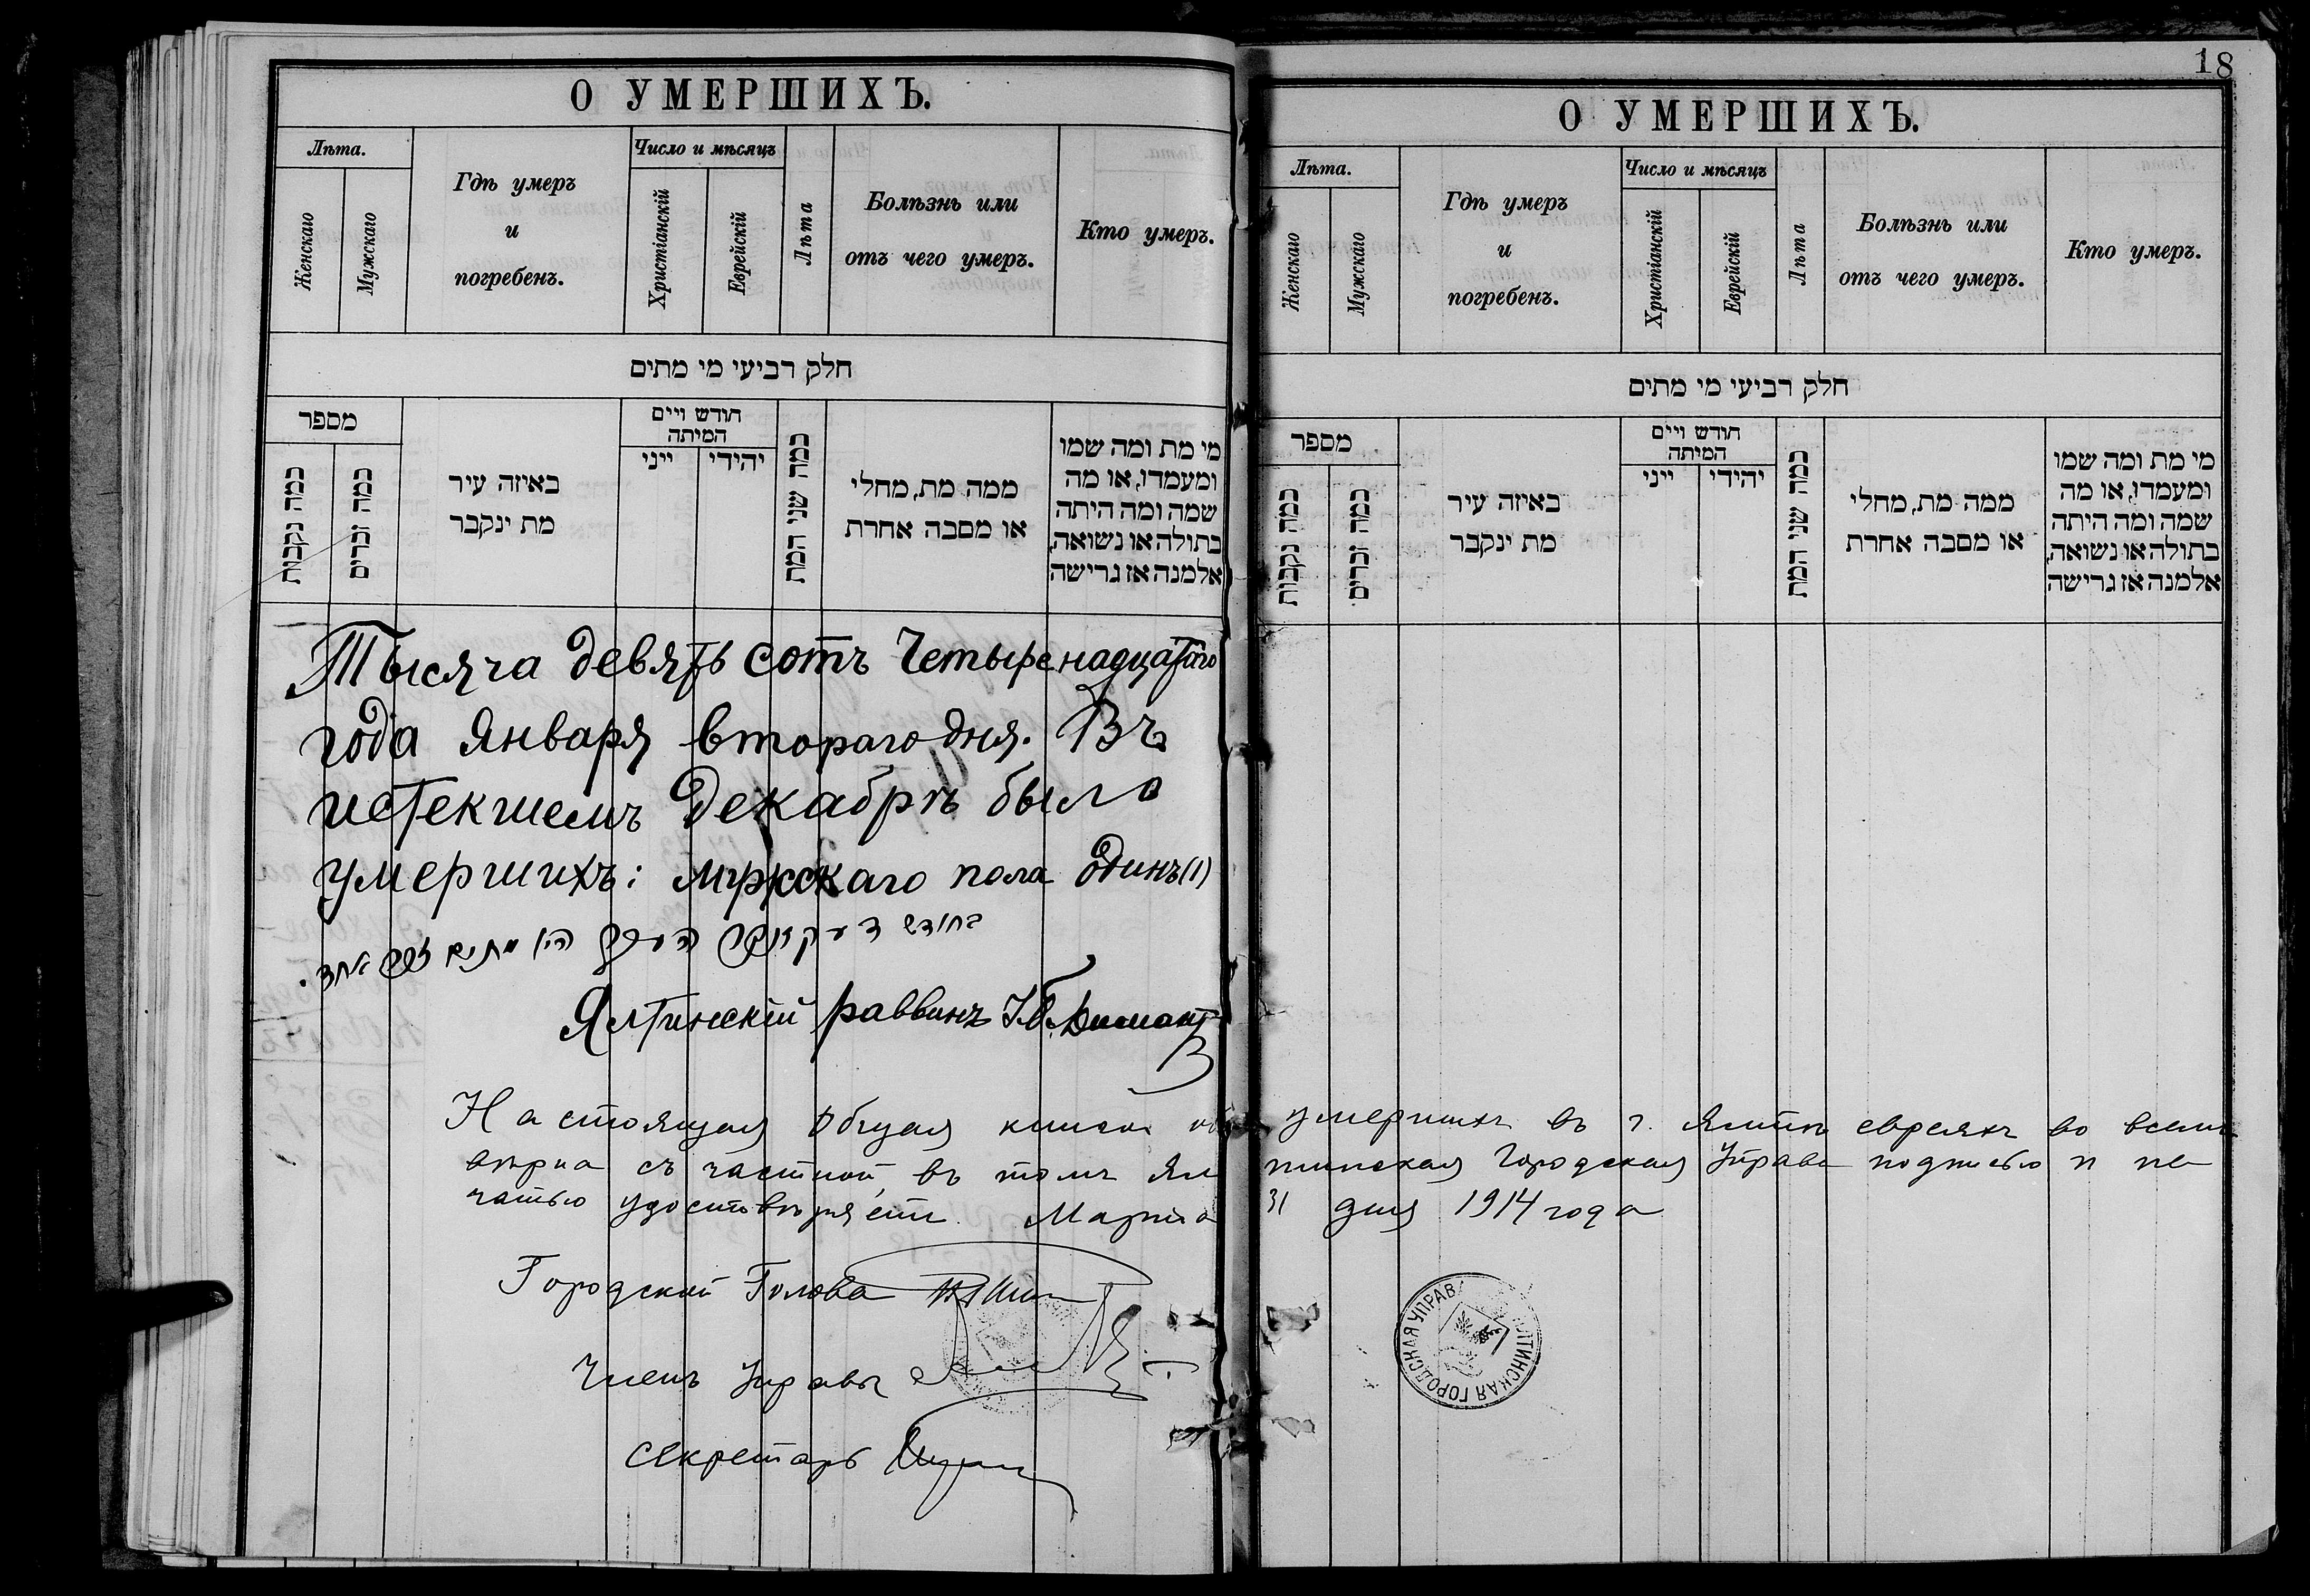 О УМЕРШИХЪ.
Лѣта.
Женскаго
Мужскаго
Гдѣ умеръ
и
погребенъ.
Число и мѣсяцъ
Христіанскій
Еврейскій
Лѣта
Болѣзнь или
отъ чего умеръ.
Кто умеръ.
חלק רביעי מי מתים
מספר
כמה נקבות
כמה זכרים
באיזה עיר
מת ינקבר
חודש ויים
המיתה
ייני
יהידי
כמה שני המת
ממה מת, מחלי
או מסבה אחרת
מי מת ומה שמו
ומעמדו, או מה
שמה ומה היתה
בתולה או נשואה,
אלמנה אז גרישה
Тысяча девять сотъ Четыренадцатаго
года Января втораго дня. Въ
истекшемъ Декабрѣ было
умершихъ: мужскаго пола Одинъ (1)
בחודש דעקאבר העבר היו מתים זכר אחד.
Ялтинскій раввинъ
Городской Голова
Членъ Управы
Секретарь
18
О УМЕРШИХЪ.
Лѣта.
Женскаго
Мужскаго
Гдѣ умеръ
и
погребенъ.
Число и мѣсяцъ
Христіанскій
Еврейскій
Лѣта
Болѣзнь или
отъ чего умеръ.
Кто умеръ.
חלק רביעי מי מתים
מספר
כמה נקבות
כמה זכרים
באיזה עיר
מת ינקבר
חודש ויים
המיתה
ייני
יהידי
כמה שני המת
ממה מת, מחלי
או מסבה אחרת
מי מת ומה שמו
ומעמדו, או מה
שמה ומה היתה
בתולה או נשואה,
אלמנה אז גרישה
Настоящая Общая книга объ умершихъ въ г. Ялтѣ евреяхъ во всемъ
вѣрна съ частной, въ томъ Ялтинская Городская Управа подписью и пе
чатью удостовѣряетъ. Марта 31 дня 1914 года
ЯЛТИНСКАЯ ГОРОДСКАЯ УПРАВА